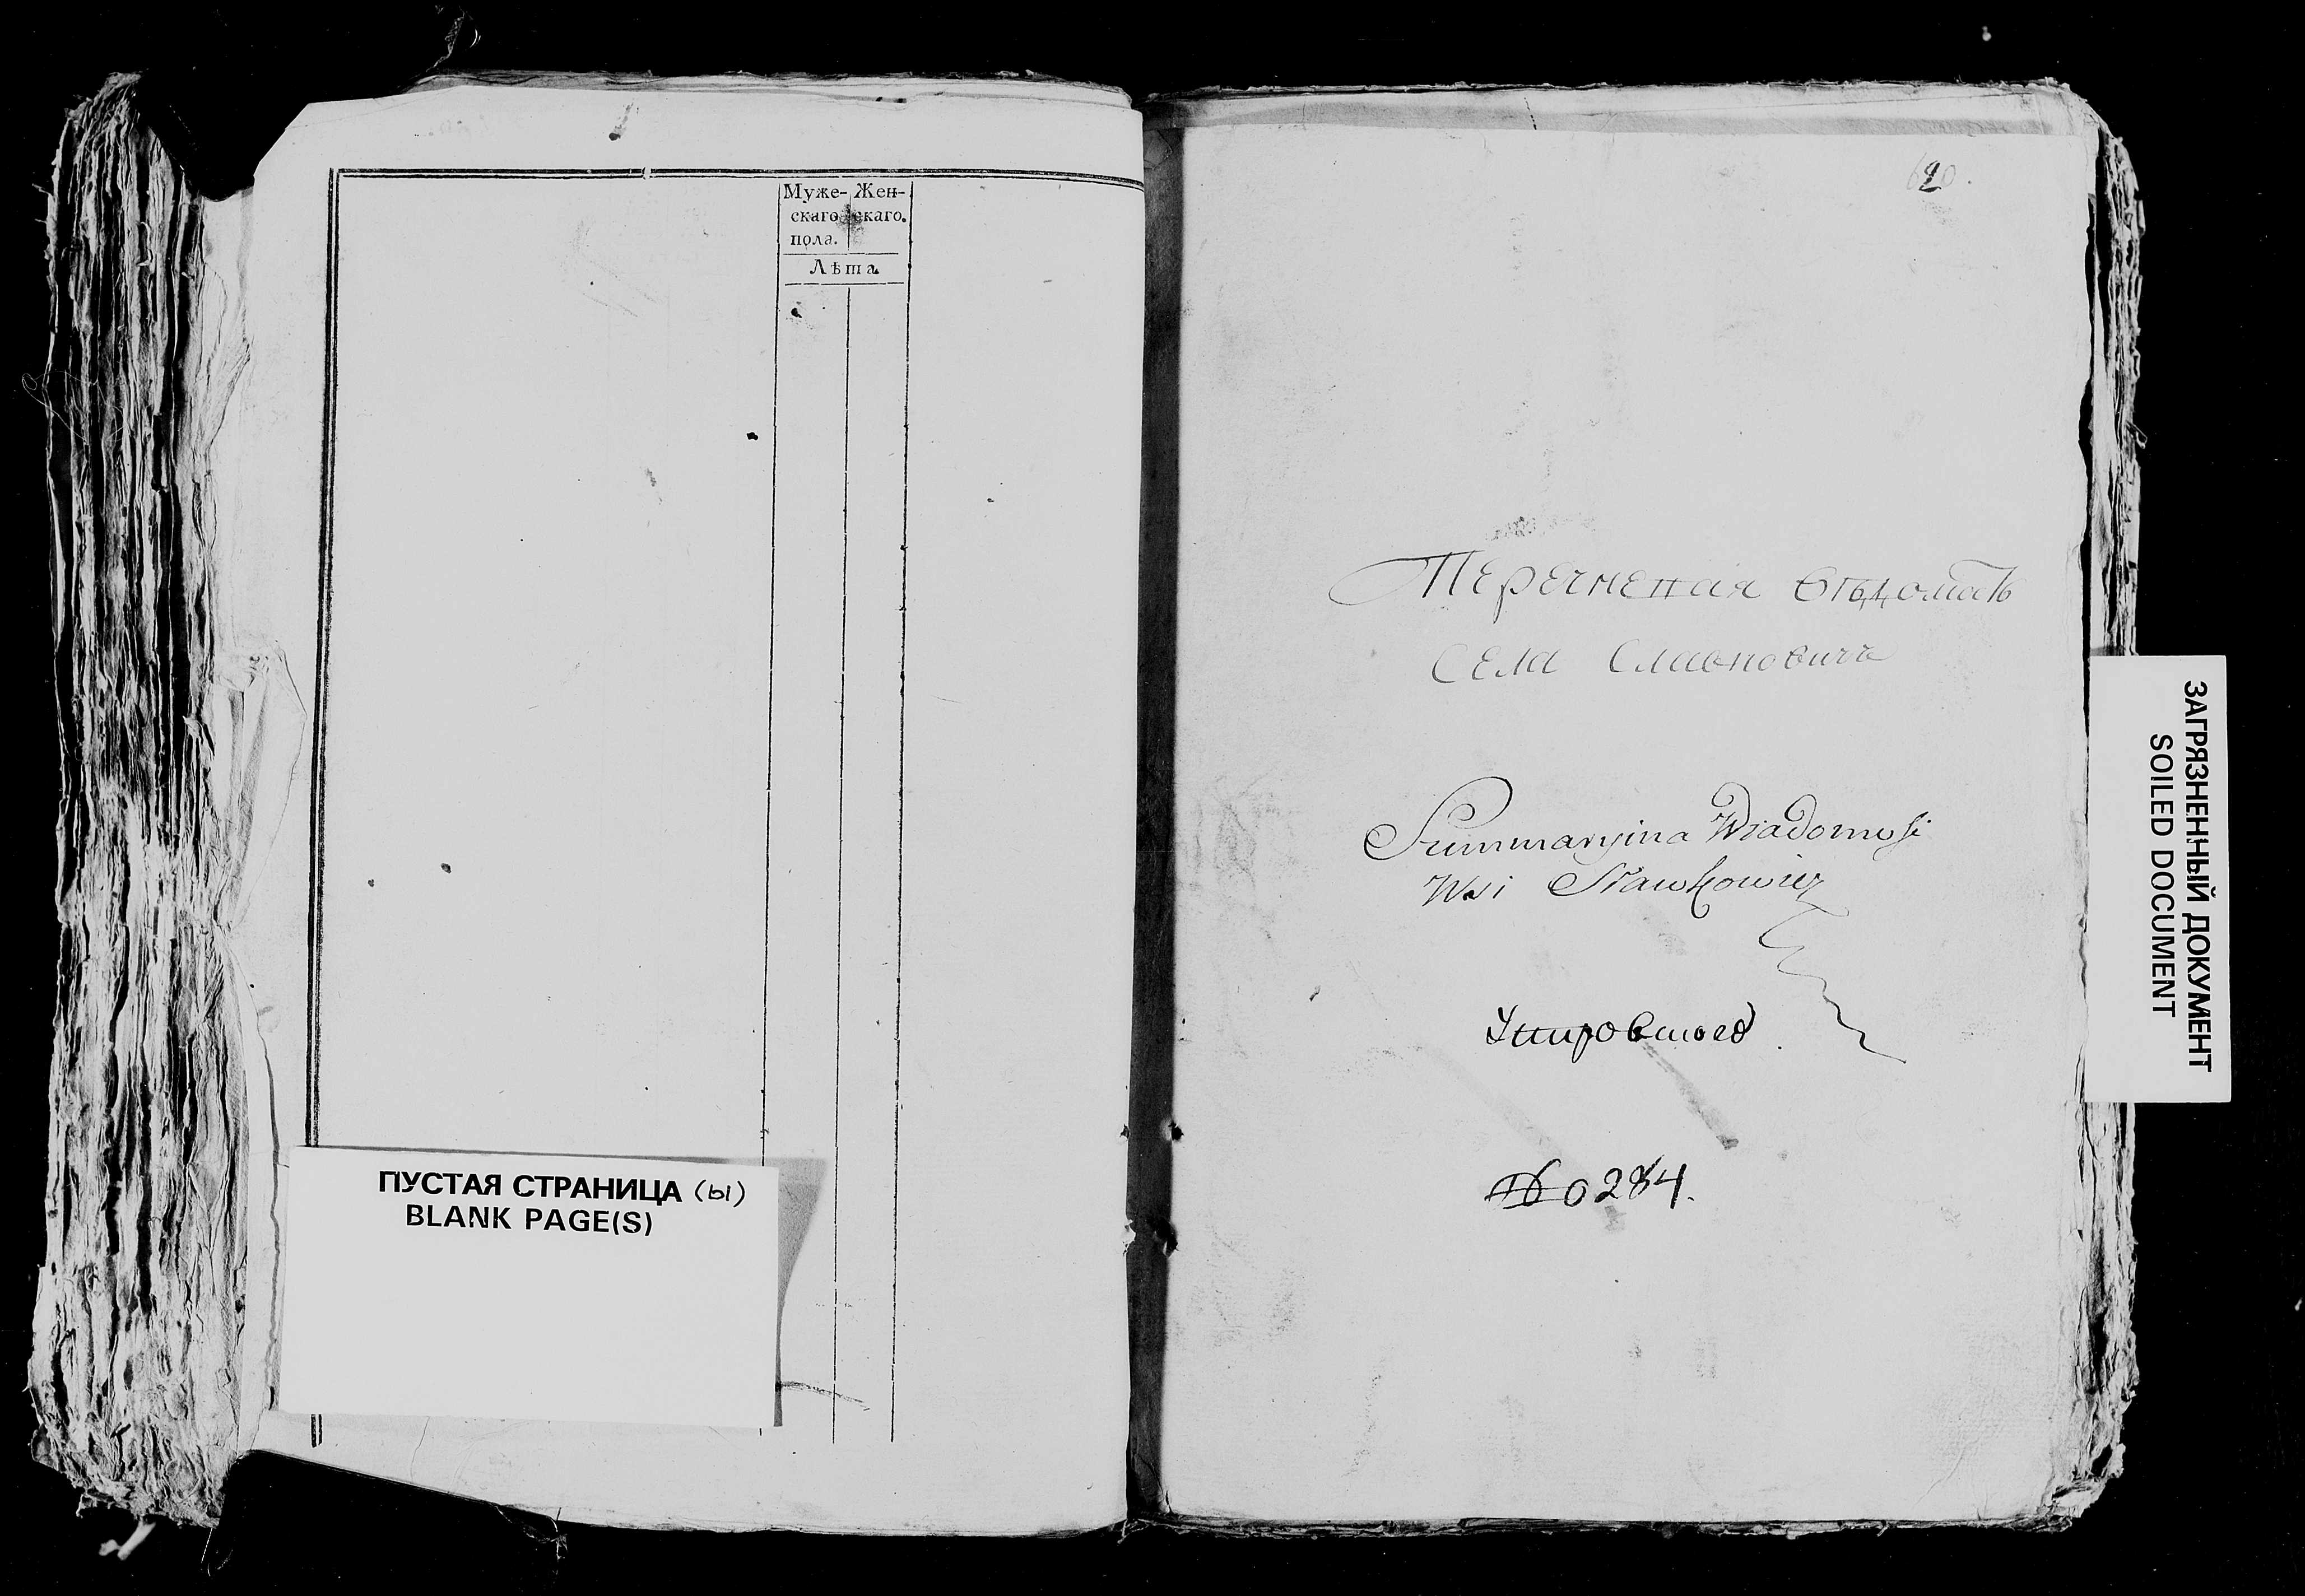 Муже- Жен-
скаго скаго.
пола.
Лѣта.
ПУСТАЯ СТРАНИЦА (ы)
BLANK PAGE(S)
Перечненая вѣдомать
Села Славковичъ
Summaryina Wiadomosi
Wsi Stawkowicz
№ 0284.
ЗАГРЯЗНЕННЫЙ ДОКУМЕНТ
SOILED DOCUMENT